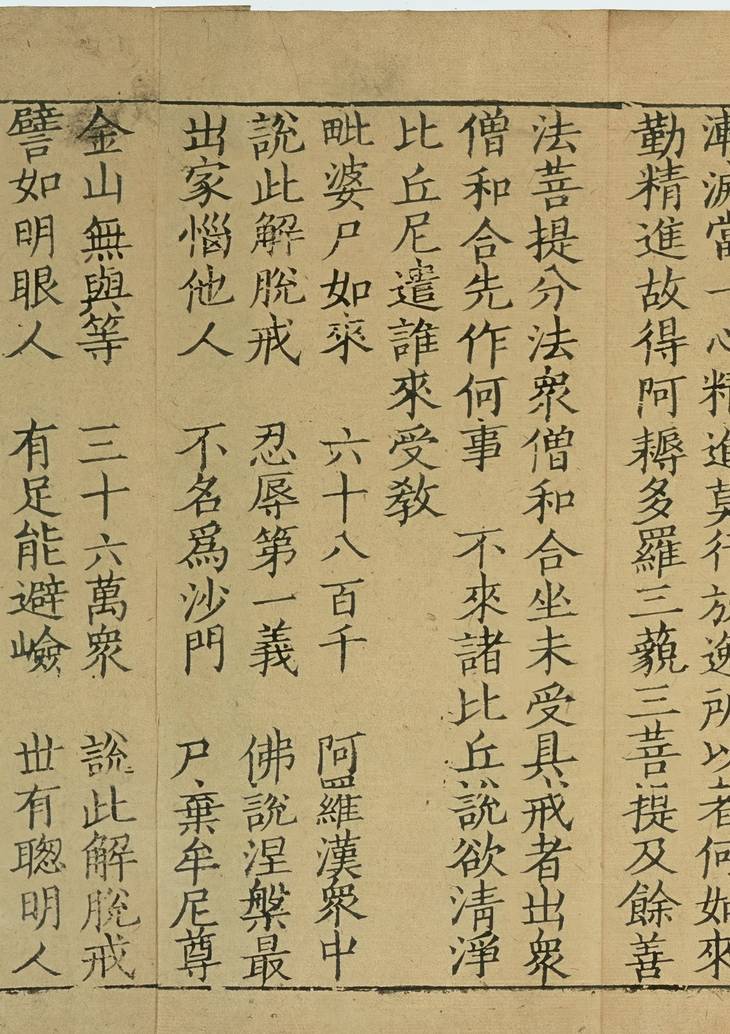 漸滅當一心精進莫行放逸所以者何如來
勤精進故得阿耨多羅三藐三菩提及餘善
法菩提分法衆僧和合坐未受具戒者出衆
僧和合先作何事 不來諸比丘說欲淸淨
比丘尼遣誰來受敎
毗婆尸如來 六十八百千 阿羅漢衆中
說此解脫戒 忍辱第一義 佛說涅槃最
出家惱他人 不名爲沙門 尸棄牟尼尊
金山無與等 三十六萬衆 說此解脫戒
譬如明眼人 有足能避嶮 世有聦明人